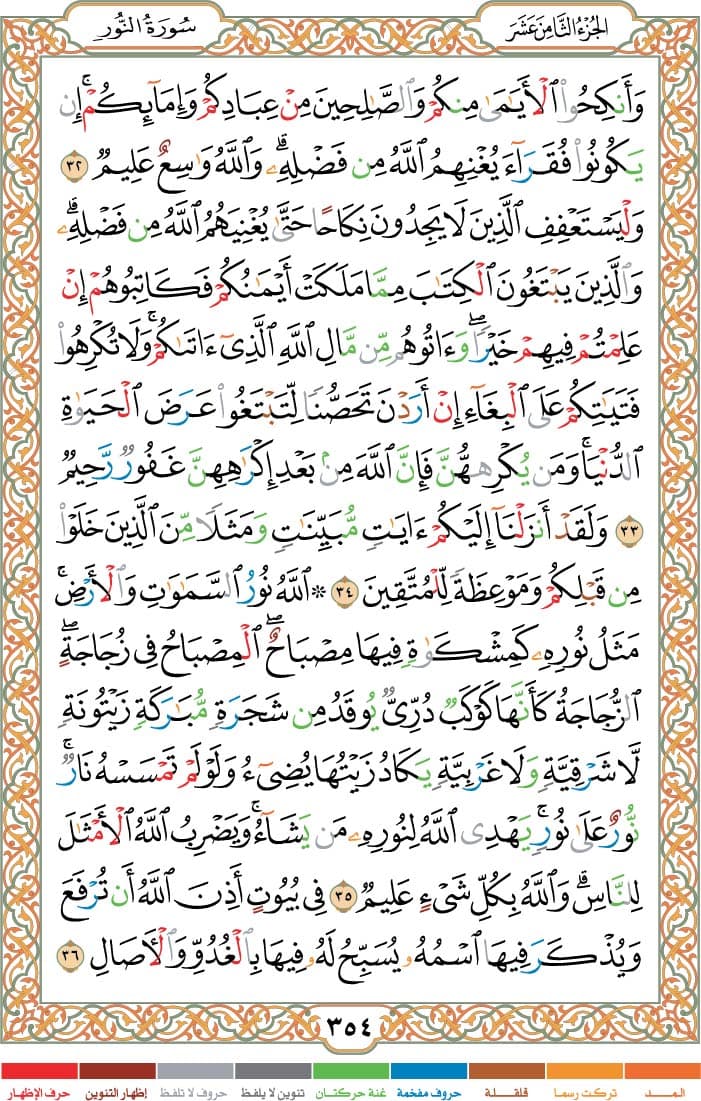 الجزء الثامن عشر
سورة النور
وَأَنكِحُوا۟ ٱلْأَيَٰمَىٰ مِنكُمْ وَٱلصَّٰلِحِينَ مِنْ عِبَادِكُمْ وَإِمَآئِكُمْ ۚ إِن
يَكُونُوا۟ فُقَرَآءَ يُغْنِهِمُ ٱللَّهُ مِن فَضْلِهِۦ ۗ وَٱللَّهُ وَٰسِعٌ عَلِيمٌ ٣٢
وَلْيَسْتَعْفِفِ ٱلَّذِينَ لَا يَجِدُونَ نِكَاحًا حَتَّىٰ يُغْنِيَهُمُ ٱللَّهُ مِن فَضْلِهِۦ ۗ
وَٱلَّذِينَ يَبْتَغُونَ ٱلْكِتَٰبَ مِمَّا مَلَكَتْ أَيْمَٰنُكُمْ فَكَاتِبُوهُمْ إِنْ
عَلِمْتُمْ فِيهِمْ خَيْرًا ۖ وَءَاتُوهُم مِّن مَّالِ ٱللَّهِ ٱلَّذِىٓ ءَاتَىٰكُمْ ۚ وَلَا تُكْرِهُوا۟
فَتَيَٰتِكُمْ عَلَى ٱلْبِغَآءِ إِنْ أَرَدْنَ تَحَصُّنًا لِّتَبْتَغُوا۟ عَرَضَ ٱلْحَيَوٰةِ
ٱلدُّنْيَا ۚ وَمَن يُكْرِههُّنَّ فَإِنَّ ٱللَّهَ مِنۢ بَعْدِ إِكْرَٰهِهِنَّ غَفُورٌ رَّحِيمٌ
٣٣ وَلَقَدْ أَنزَلْنَآ إِلَيْكُمْ ءَايَٰتٍ مُّبَيِّنَٰتٍ وَمَثَلًا مِّنَ ٱلَّذِينَ خَلَوْا۟
مِن قَبْلِكُمْ وَمَوْعِظَةً لِّلْمُتَّقِينَ ٣٤ ۞ ٱللَّهُ نُورُ ٱلسَّمَٰوَٰتِ وَٱلْأَرْضِ ۚ
مَثَلُ نُورِهِۦ كَمِشْكَوٰةٍ فِيهَا مِصْبَاحٌ ۖ ٱلْمِصْبَاحُ فِى زُجَاجَةٍ ۖ
ٱلزُّجَاجَةُ كَأَنَّهَا كَوْكَبٌ دُرِّىٌّ يُوقَدُ مِن شَجَرَةٍ مُّبَٰرَكَةٍ زَيْتُونَةٍ
لَّا شَرْقِيَّةٍ وَلَا غَرْبِيَّةٍ يَكَادُ زَيْتُهَا يُضِىٓءُ وَلَوْ لَمْ تَمْسَسْهُ نَارٌ ۚ
نُّورٌ عَلَىٰ نُورٍ ۗ يَهْدِى ٱللَّهُ لِنُورِهِۦ مَن يَشَآءُ ۚ وَيَضْرِبُ ٱللَّهُ ٱلْأَمْثَٰلَ
لِلنَّاسِ ۗ وَٱللَّهُ بِكُلِّ شَىْءٍ عَلِيمٌ ٣٥ فِى بُيُوتٍ أَذِنَ ٱللَّهُ أَن تُرْفَعَ
وَيُذْكَرَ فِيهَا ٱسْمُهُۥ يُسَبِّحُ لَهُۥ فِيهَا بِٱلْغُدُوِّ وَٱلْءَاصَالِ ٣٦
٣٥٤
المــد تركت رسما قلقلة حروف مفخمة غنة حركتان تنوين لا يلفظ حروف لا تلفظ إظهار التنوين حرف الإظهار